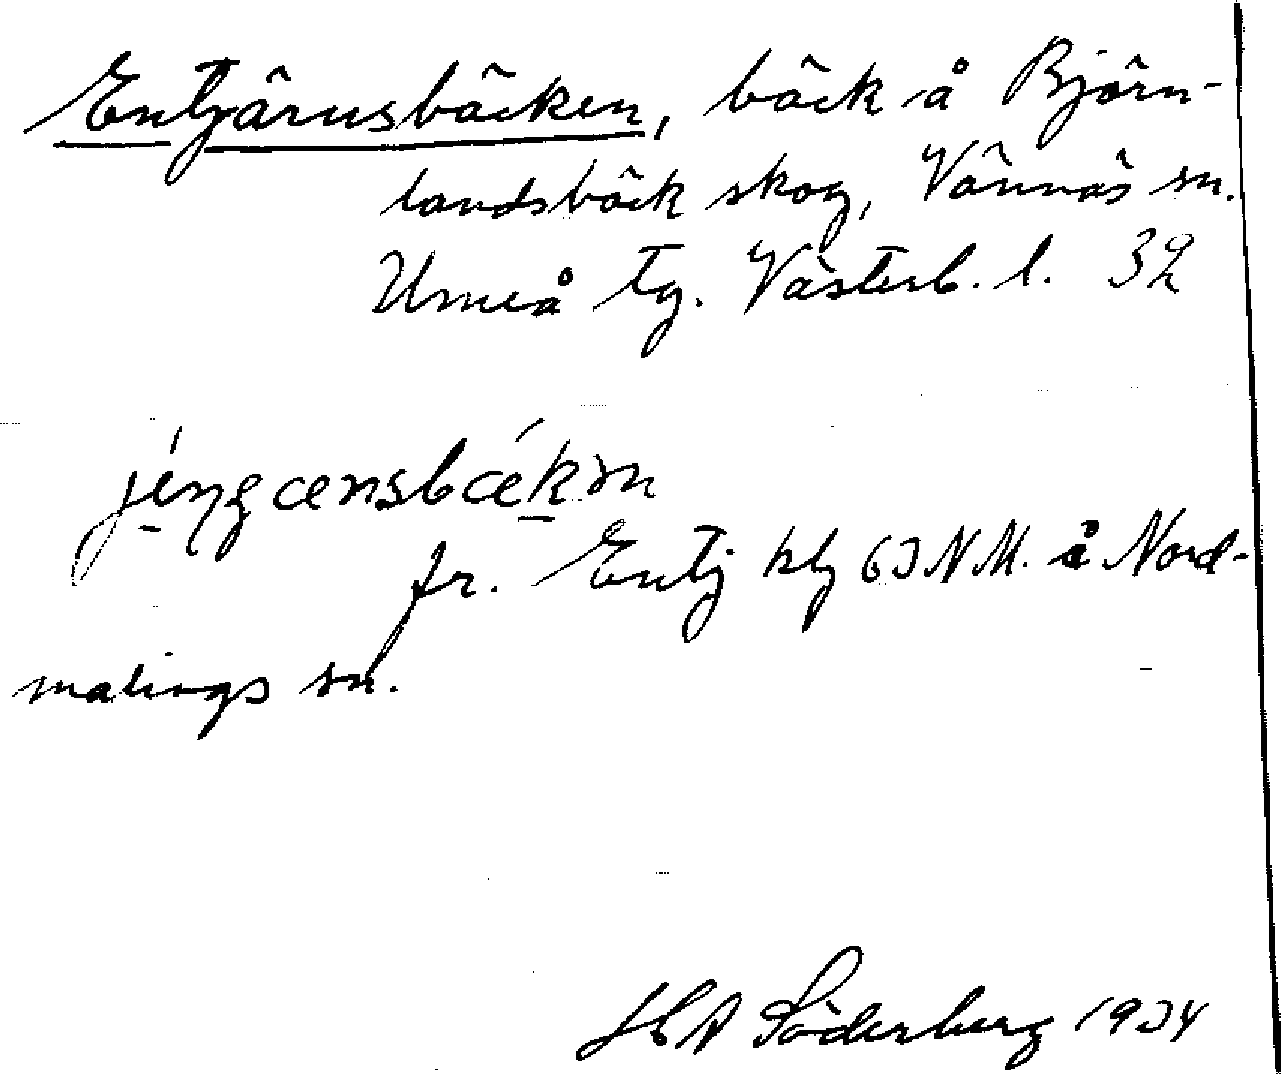 Entjärnsbäcken, bäck å Björn-
landsbäck skog, Vännäs sn.
Umeå tg. Västerb. l. 32
fr. Entj å Nord-
malings sn.
Söderberg 1934